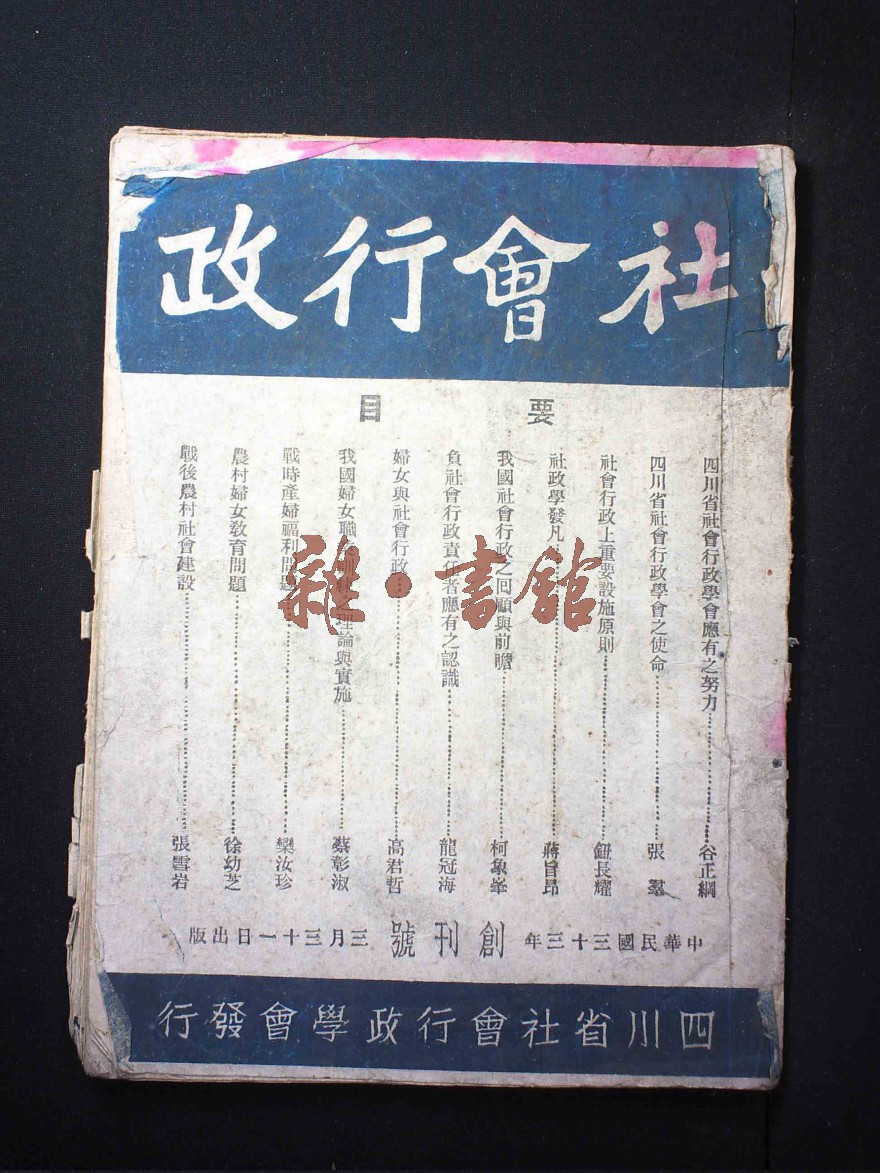 社會行政
要目
四川省社會行政學會應有之努力……谷正綱
四川省社會行政學會之使命……張羣
社會行政上重要設施原則……鈕長耀
社政學發凡……蔣旨昂
我國社會行政之回顧與前瞻……柯象峯
負社會行政責任者應有之認識……龍冠海
婦女與社會行政……高君哲
我國婦女職業訓練之理論與實施……蔡彰淑
戰時產婦福利問題……樂汝珍
農村婦女教育問題……徐幼芝
戰後農村社會建設……張雪岩
中華民國三十三年創刊號三月三十一日出版
四川省社會行政學會發行
雜·書館